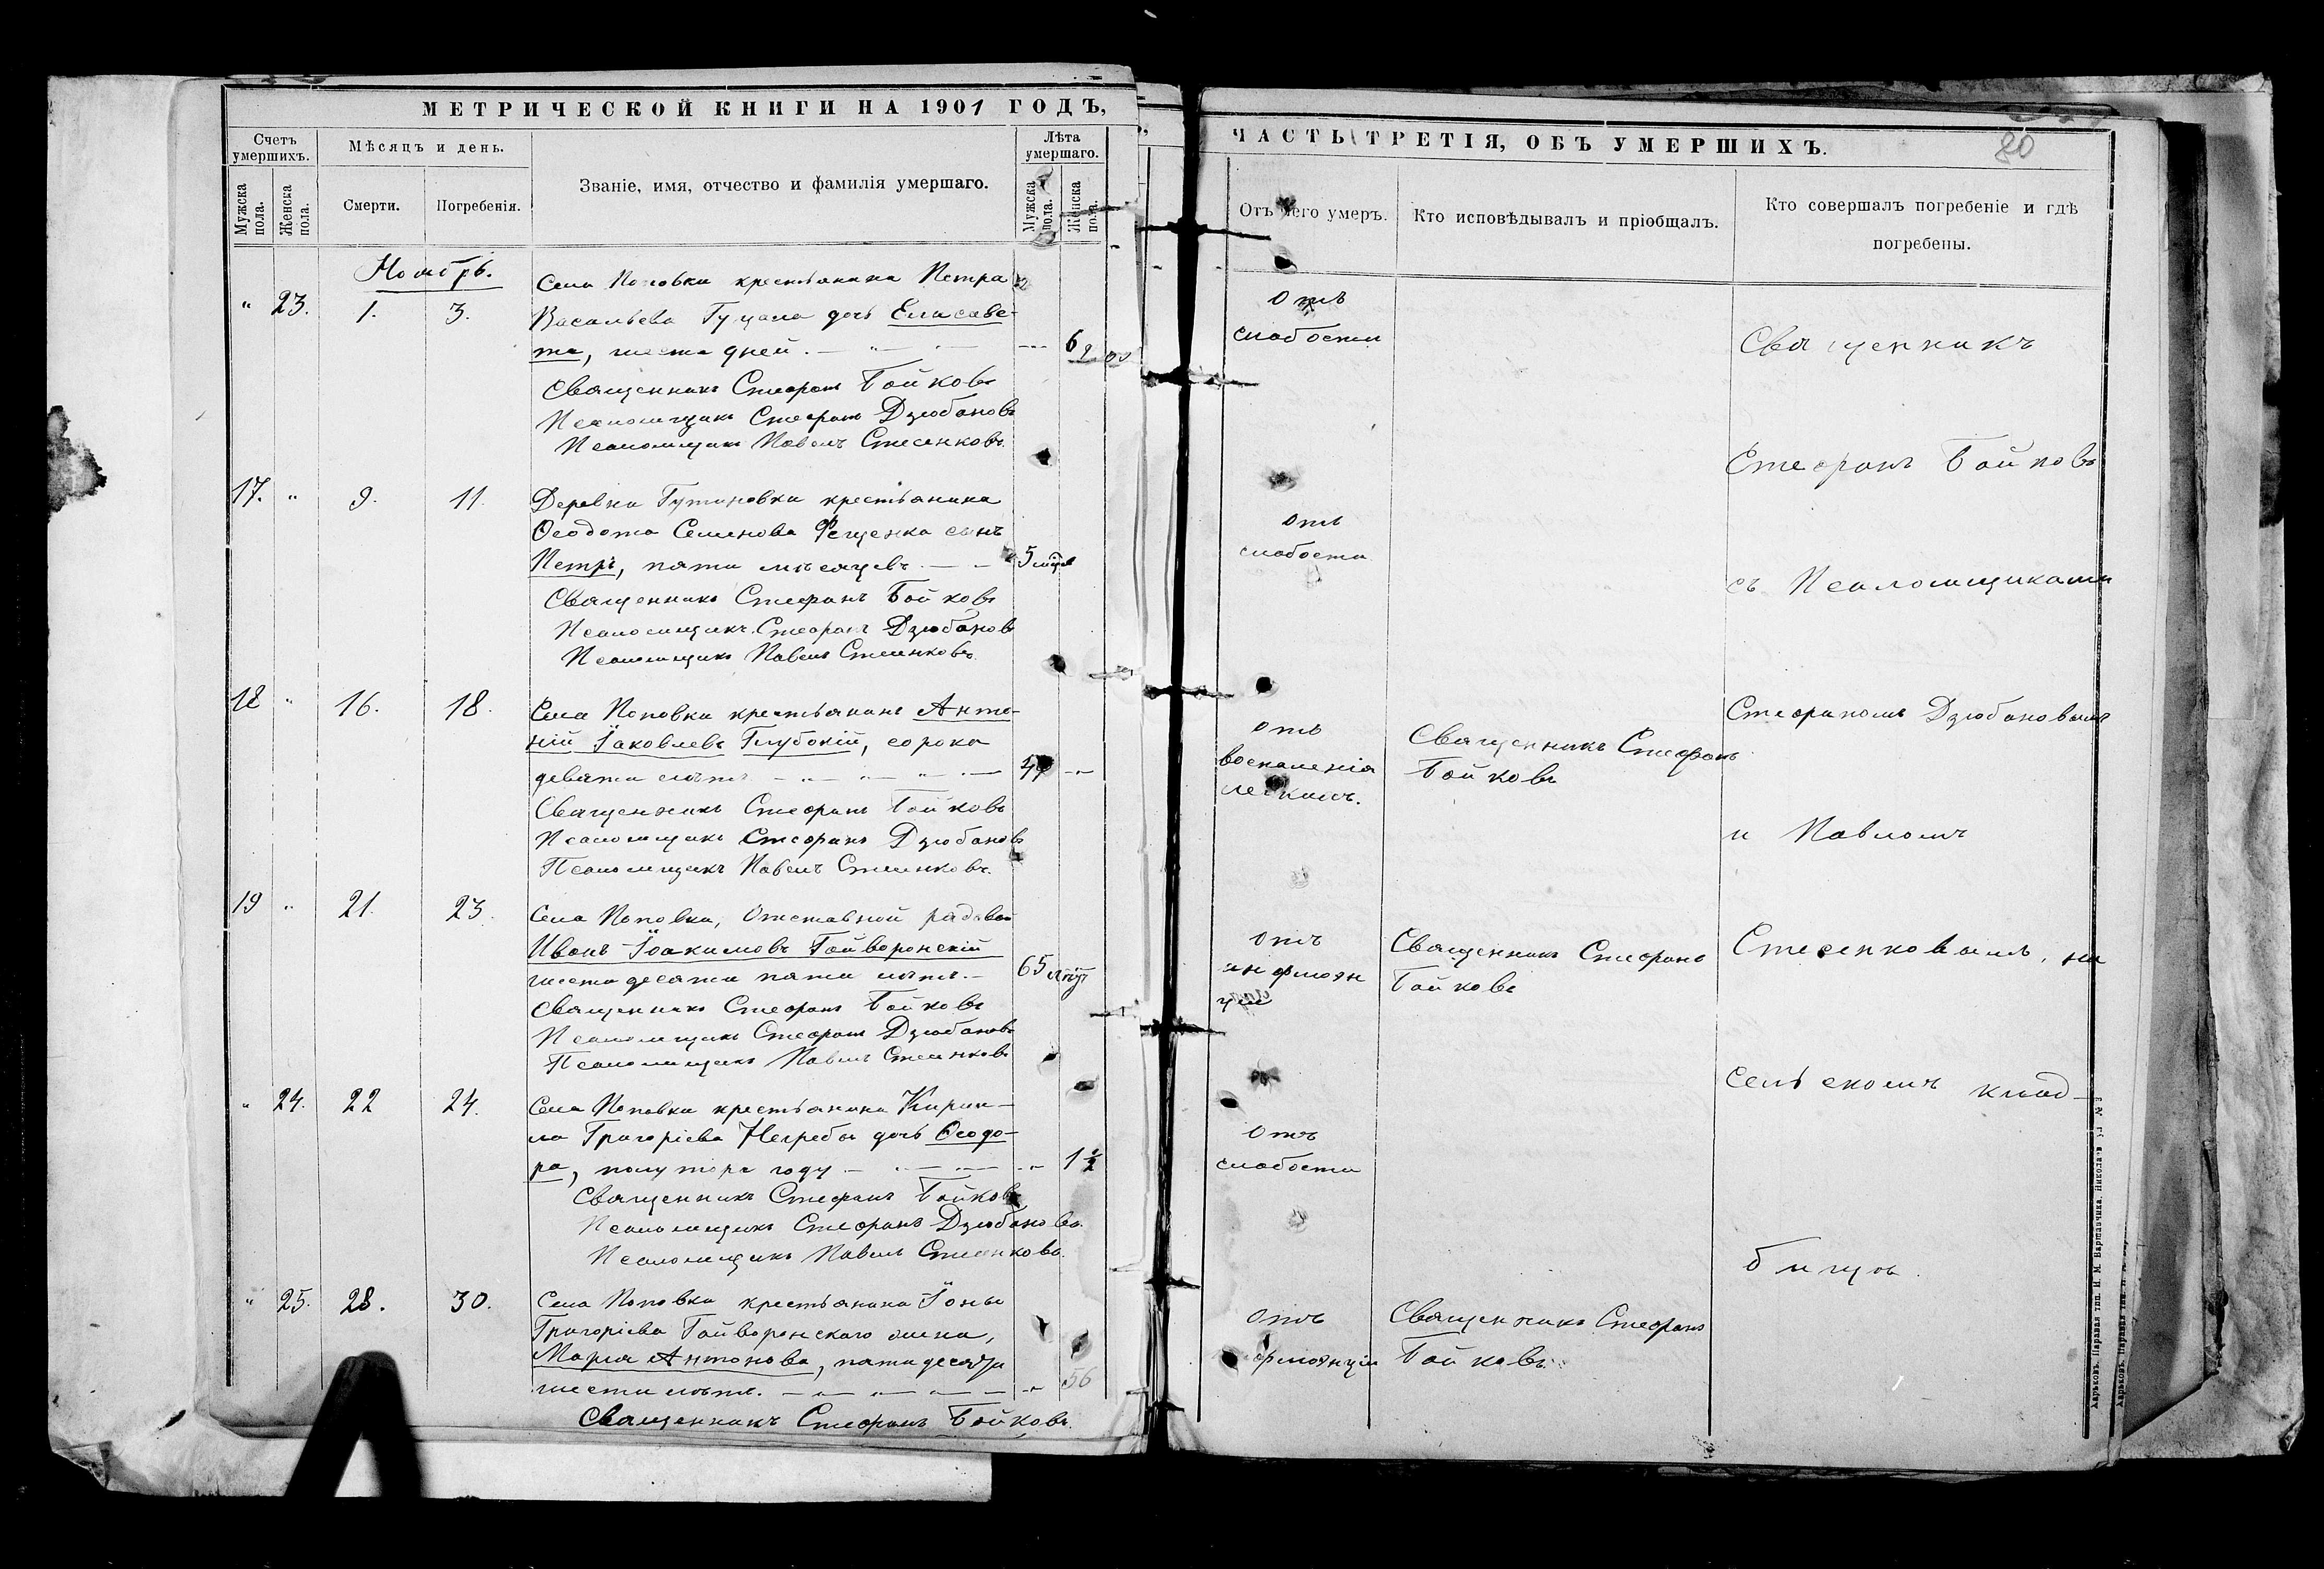 МЕТРИЧЕСКОЙ КНИГИ НА 1901 ГОДЪ,
Счетъ умершихъ.
Мѣсяцъ и день.
Званіе, имя, отчество и фамилія умершаго.
Лѣта умершаго.
Мужска пола.
Женска пола.
Смерти.
Погребенія.
Мужска пола.
Женска пола.
Ноябрь.
" 23. 1. 3.
Села Поповки крестьянина Петра
Васильева Гуцала дочь Елисаве-
та, шести дней. 6
Священникъ Стефанъ Бойковъ
Псаломщикъ Стефанъ Дзюбановъ
Псаломщикъ Павелъ Стесенковъ.
17. " 9. 11.
Деревни Гутировки крестьянина
Ѳеодота Семенова Фещенка сынъ
Петръ, пяти мѣсяцевъ 5 мѣс
Священникъ Стефанъ Бойковъ
Псаломщикъ Стефанъ Дзюбановъ
Псаломщикъ Павелъ Стесенковъ.
18 " 16. 18.
Села Поповки крестьянинъ Анто-
ній Іаковлевъ Глубокій, сорока
девяти лѣтъ 49
Священникъ Стефанъ Бойковъ
Псаломщикъ Стефанъ Дзюбановъ
Псаломщикъ Павелъ Стесенковъ.
19 " 21. 23.
Села Поповки, Отставной рядовой
Иванъ Іоакимовъ Гайворонскій
шестидесяти пяти лѣтъ. 65
Священникъ Стефанъ Бойковъ
Псаломщикъ Стефанъ Дзюбановъ
Псаломщикъ Павелъ Стесенковъ
" 24. 22 24.
Села Поповки крестьянина Кирил-
ла Григоріева Негребы дочь Ѳеодо-
ра, полутора году 1½
Священникъ Стефанъ Бойковъ
Псаломщикъ Стефанъ Дзюбановъ.
Псаломщикъ Павелъ Стесенковъ.
" 25. 28. 30.
Села Поповки крестьянина Іоны
Григоріева Гайворонскаго жена,
Марія Антонова, пятидесяти
шести лѣтъ. 56
Священникъ Стефанъ Бойковъ.
ЧАСТЬ ТРЕТІЯ, ОБЪ УМЕРШИХЪ.
80
Отъ чего умеръ.
Кто исповѣдывалъ и пріобщалъ.
Кто совершалъ погребеніе и гдѣ
погребены.
Отъ
слабости
Отъ
слабости
Отъ
воспаленія
легкихъ.
Священникъ Стефанъ
Бойковъ
Отъ
инфлюэн
ціи
Священникъ Стефанъ
Бойковъ
Отъ
слабости
Отъ
инфлюэнціи
Священникъ Стефанъ
Бойковъ
Священникъ
Стефанъ Бойковъ
съ Псаломщиками
Стефаномъ Дзюбановымъ
и Павломъ
Стесенковымъ, на
сельскомъ клад-
бищѣ.